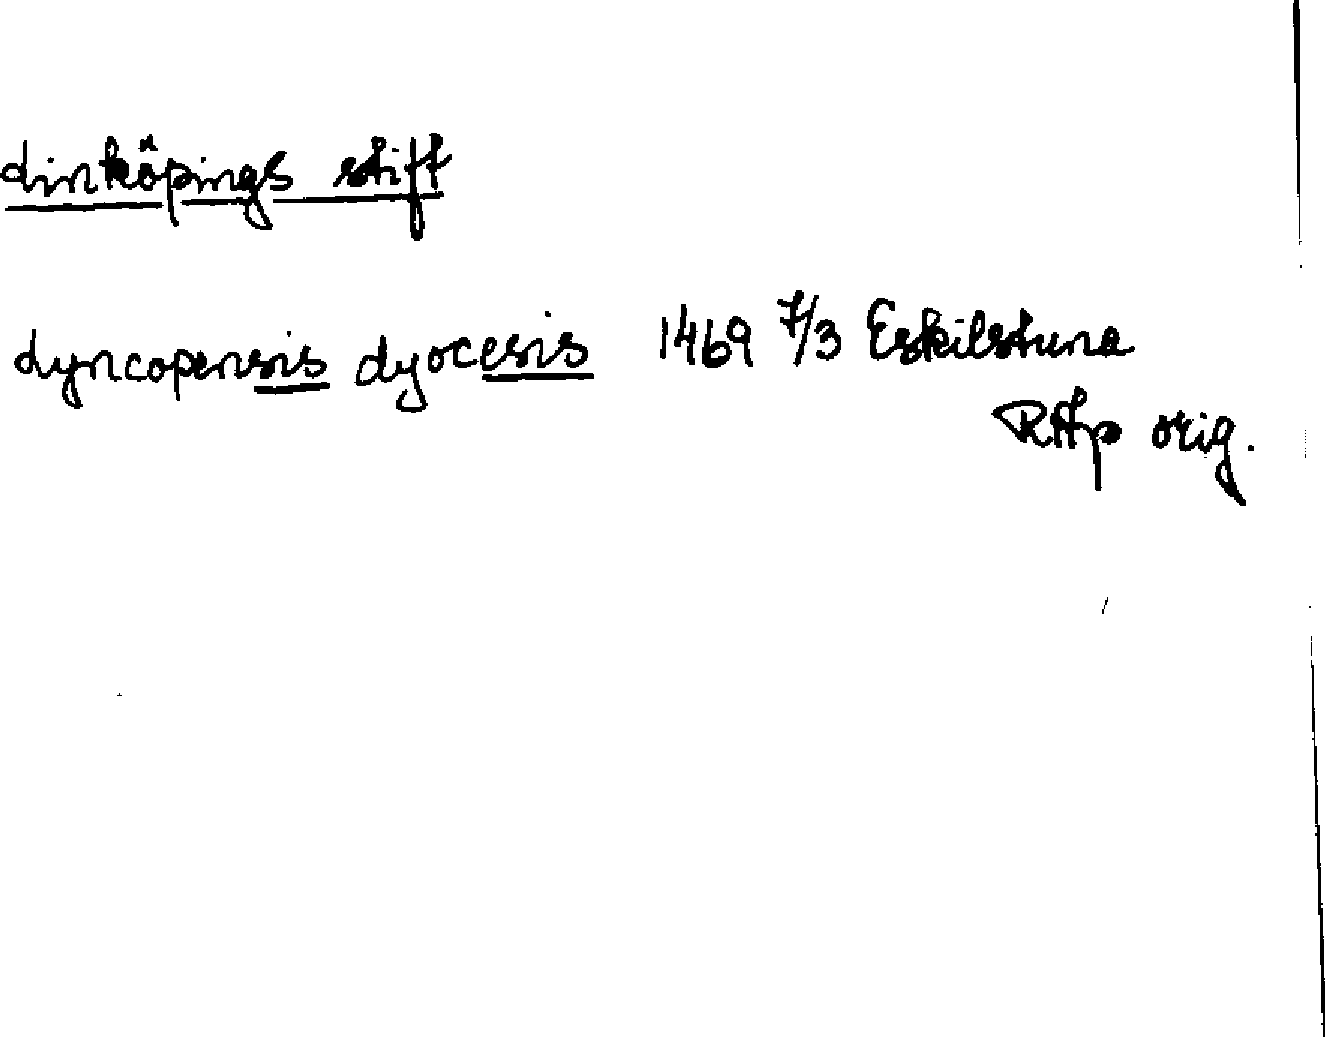 Linköpings stift
Lyncopensis dyocesis 1469 7/3 Eskilstuna
RAp orig.